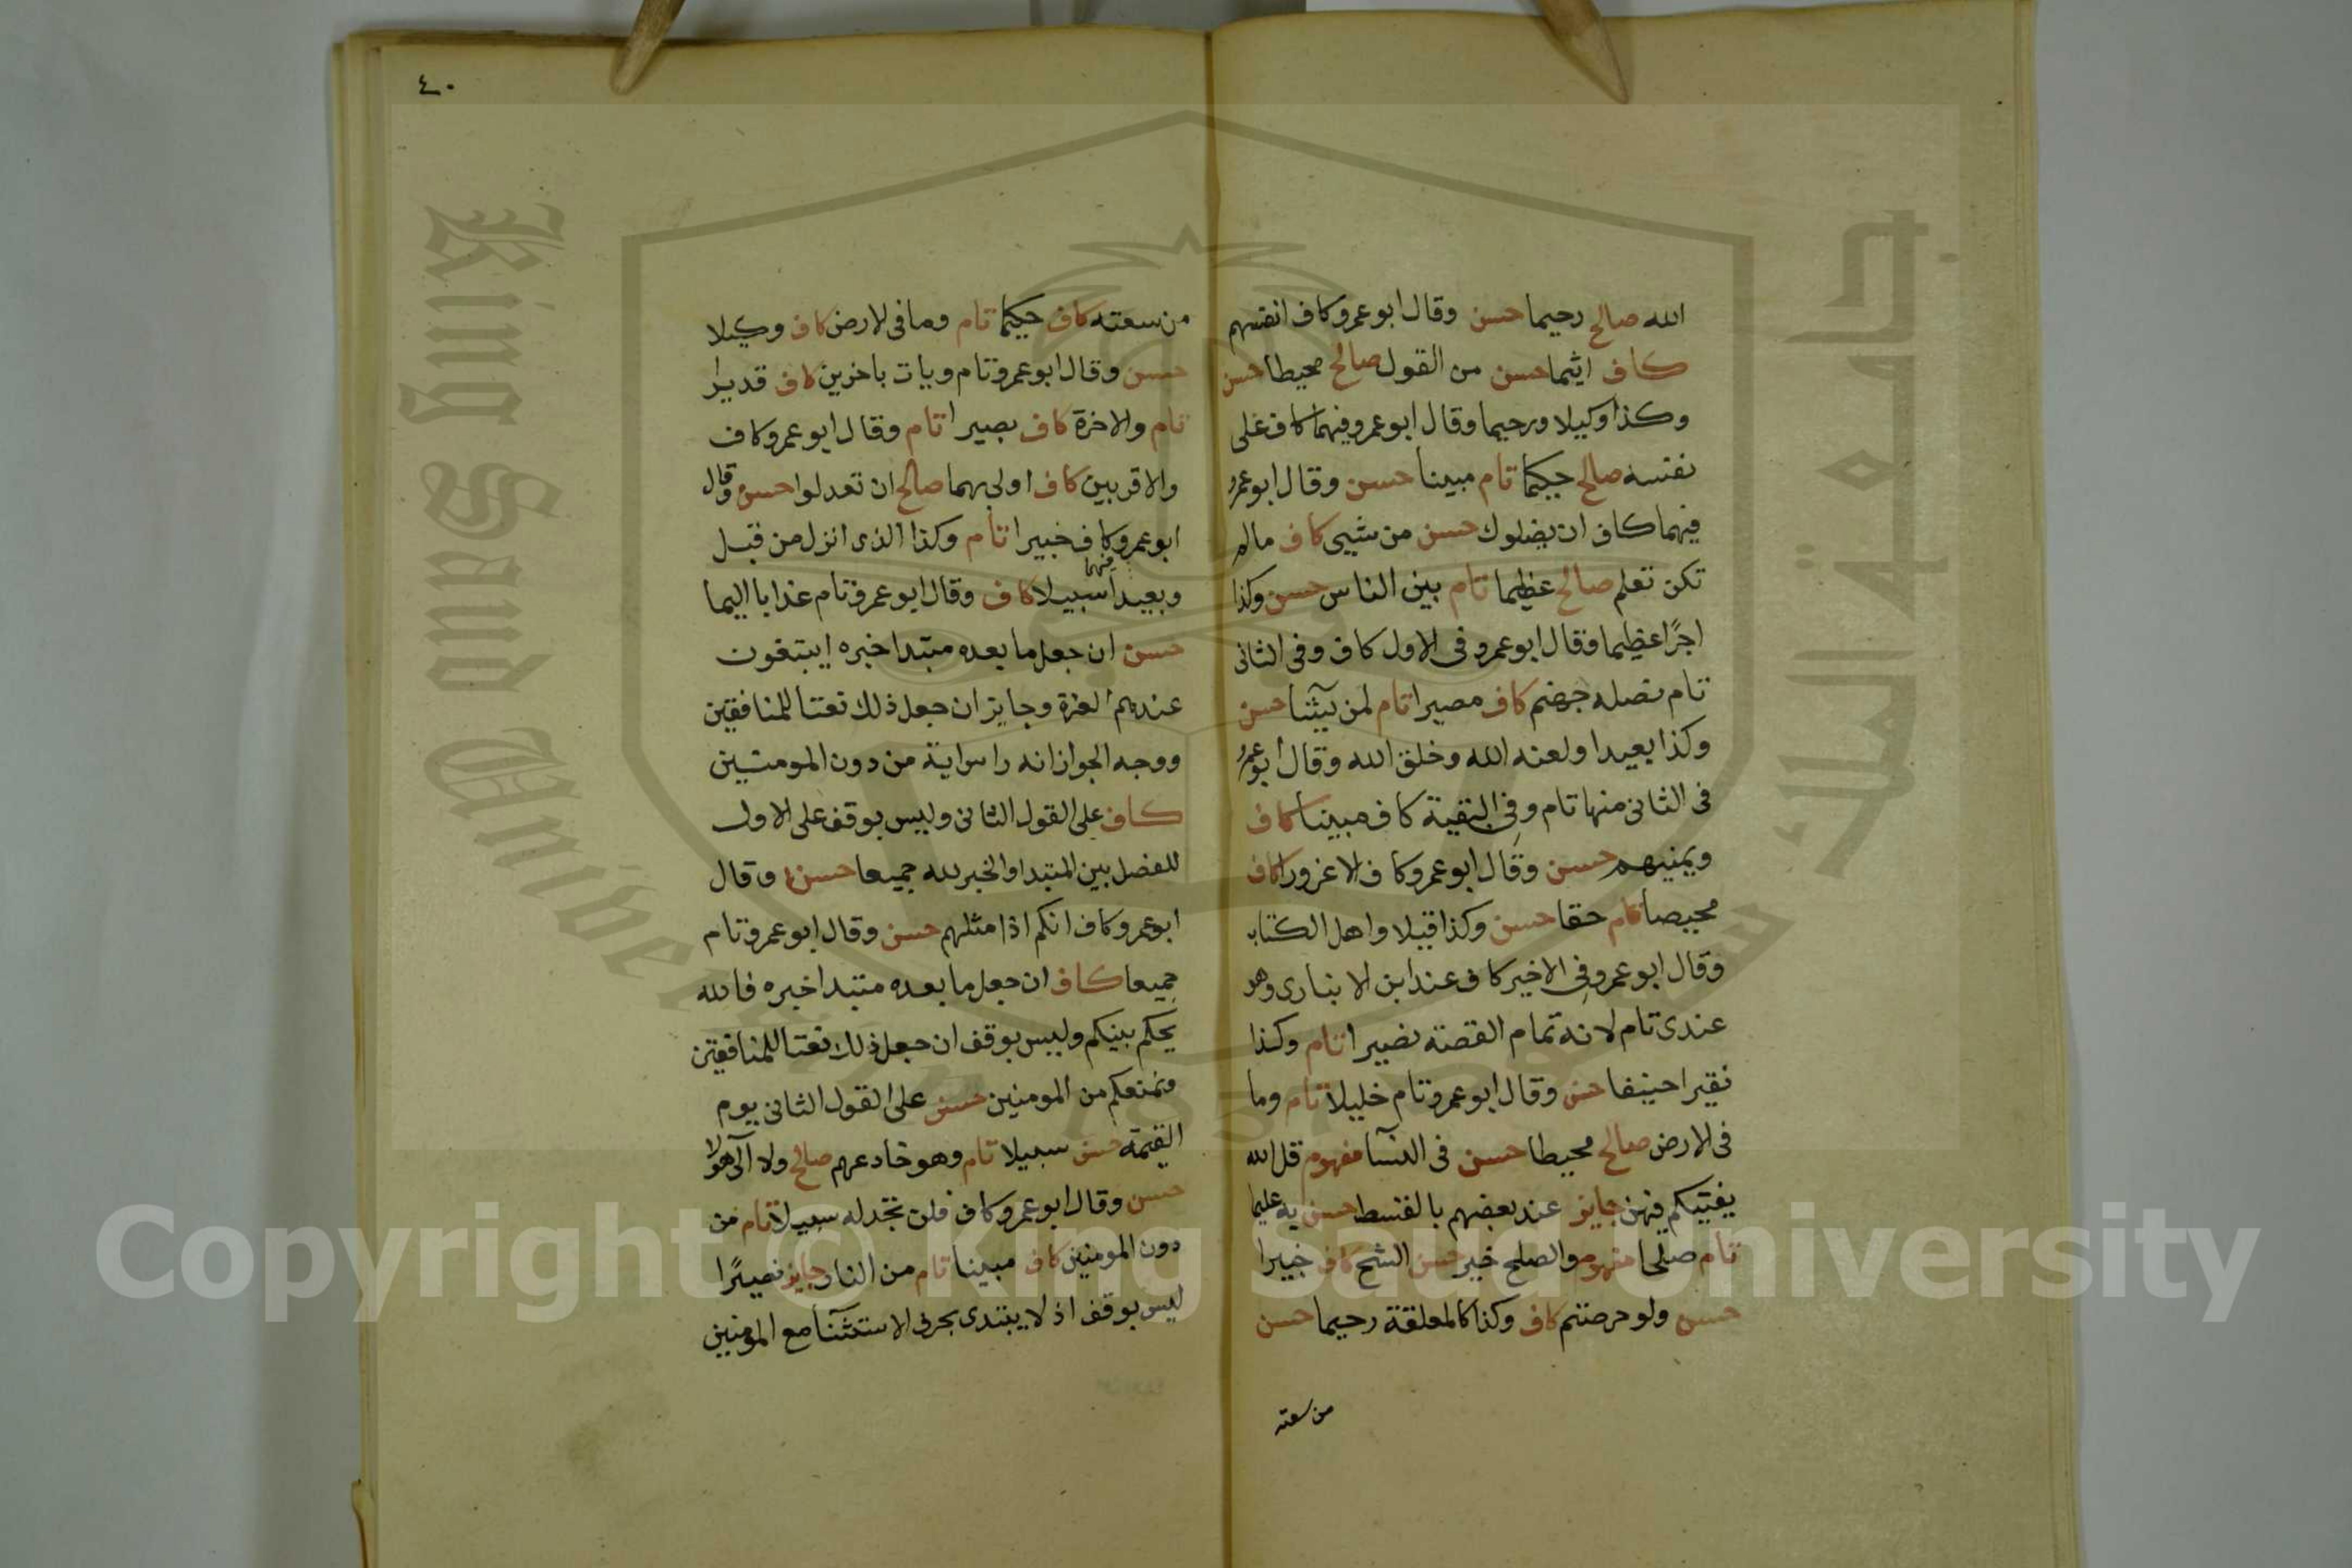 الله صالح رحيما حسن وقال ابو عمرو كاف انفسهم
كاف اثيما حسن من القول صالح محيطا حسن
وكذا وكيلا ورحيما وقال ابو عمرو فيهما كاف على
نفسه صالح حكيما تام مبينا حسن وقال ابو عمرو
فيهما كاف ان يضلوك حسن من شيى كاف مالم
تكن تعلم صالح عظيما تام بين الناس حسن وكذا
اجرًا عظيما وقال ابو عمرو فى الاول كاف وفى الثانى
تام نصله جهنم كاف مصيرا تام لمن يشآ حسن
وكذا بعيدا ولعنه الله وخلق الله وقال ابو عمرو
فى الثانى منها تام وفى البقية كاف مبينا كاف
ويمنيهم حسن وقال ابو عمرو كاف الا غرورا كاف
محيصا تام حقا حسن وكذا قيلا واهل الكتاب
وقال ابو عمرو فى الاخير كاف عند ابن الانبارى وهو
عندى تام لانه تمام القصة نصيرا تام وكذا
نقيرا حنيفا حسن وقال ابو عمرو تام خليلا تام وما
فى لارض صالح محيطا حسن فى النسآ مفهوم قل الله
يفتيكم فيهن جايز عند بعضهم بالقسط حسن به عليما
تام صلحا مفهوم والصلح خير حسن الشح كاف خبيرا
حسن ولو حرصتم كاف وكذا كالمعلقة رحيما حسن
من سعته
٤٠
من سعته كاف حكيما تام وما فى لارض كاف وكيلا
حسن وقال ابو عمرو تام ويات باخرين كاف قديرا
تام والاخرة كاف بصيرا تام وقال ابو عمرو كاف
والاقربين كاف اولى بهما صالح ان تعدلوا حسن وقال
ابو عمرو كاف خبيرا تام وكذا الذى انزل من قبل
فيهما
وبعيدا سبيلا كاف وقال ابو عمرو تام عذابا اليما
حسن ان جعل ما بعده مبتدا خبره ايبتغون
عندهم العزة وجايز ان جعل ذلك نعتا للمنافقين
ووجه الجواز انه راس اية من دون المومنين
كاف على القول الثانى وليس بوقف على الاول
للفصل بين المبتدا والخبر لله جميعا حسن وقال
ابو عمرو كاف انكم اذا مثلهم حسن وقال ابو عمرو تام
جميعا كاف ان جعل ما بعده مبتدا خبره فالله
يحكم بينكم وليس بوقف ان جعل ذلك نعتا للمنافقين
ونمنعكم من المومنين حسن على القول الثانى يوم
القيمة حسن سبيلا تام وهو خادعهم صالح ولا الى هولا
حسن وقال ابو عمرو كاف فلن تجد له سبيلا تام من
دون المومنين كاف مبينا تام من النار جايز نصيرًا
ليس بوقف اذ لا يبتدى بحرف الاستثنآ مع المومنين
جامعة الملك سعود
King Saud University
1957
Copyright © King Saud University